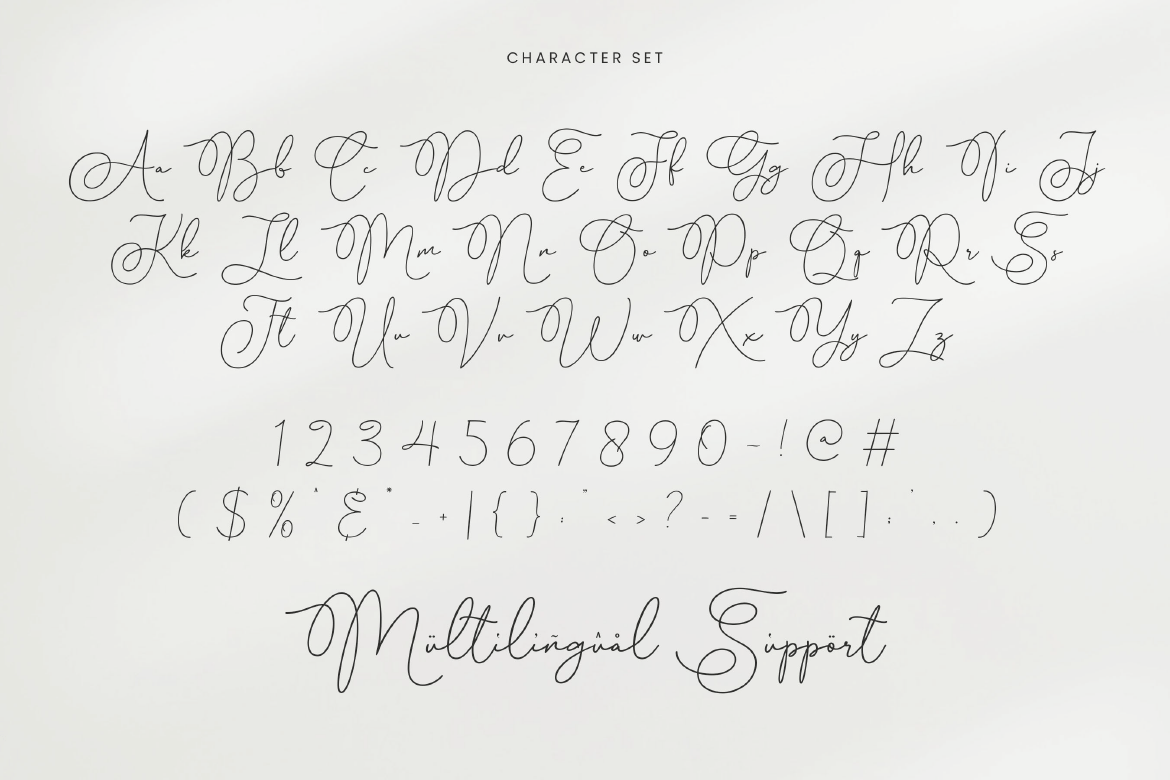 CHARACTER SET
Aa Bb Cc Dd Ee Ff Gg Hh Ii Jj
Kk Ll Mm Nn Oo Pp Qq Rr Ss
Tt Uu Vv Ww Xx Yy Zz
1 2 3 4 5 6 7 8 9 0 ~ ! @ #
( $ % ^ & * _ + | { } : " < > ? - = / \ [ ] ; ' , . )
Mültilingûål Súppört